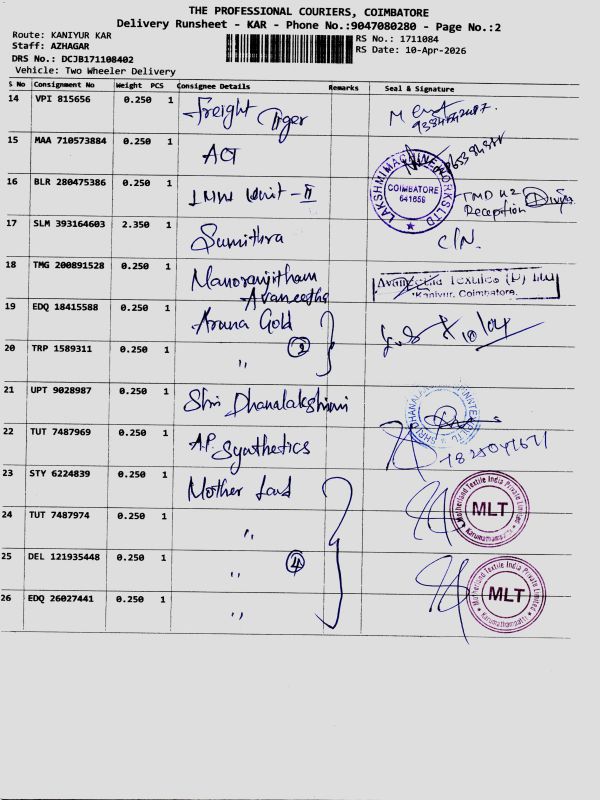 THE PROFESSIONAL COURIERS, COIMBATORE
Delivery Runsheet - KAR - Phone No.:9047080280 - Page No.:2
Route: KANIYUR KAR
Staff: AZHAGAR
DRS No.: DCJB171108402
Vehicle: Two Wheeler Delivery
RS No.: 1711084
RS Date: 10-Apr-2026
S No Consignment No Weight PCS Consignee Details Remarks Seal & Signature
14 VPI 815656 0.250 1 Freight Tiger
15 MAA 710573884 0.250 1 ACT
16 BLR 280475386 0.250 1 LMW Unit - II
LAKSHMI MACHINE WORKS LTD
COIMBATORE
641659
Reception Divya
17 SLM 393164603 2.350 1 Sumithra C/N.
18 TMG 200891528 0.250 1 Manoranjitham
Avaneetha
Avaneetha Textiles (P) Ltd
Kaniyur, Coimbatore.
19 EDQ 18415588 0.250 1 Aruna Gold
20 TRP 1589311 0.250 1 ,, 2
21 UPT 9028987 0.250 1 Shri Dhanalakshimi
22 TUT 7487969 0.250 1 A.P. Synthetics
23 STY 6224839 0.250 1 Mother Land
Motherland Textile India Private Limited
MLT
Karunathampatti
24 TUT 7487974 0.250 1 ,,
25 DEL 121935448 0.250 1 ,, 4
26 EDQ 26027441 0.250 1 ,,
Motherland Textile India Private Limited
MLT
Karunathampatti